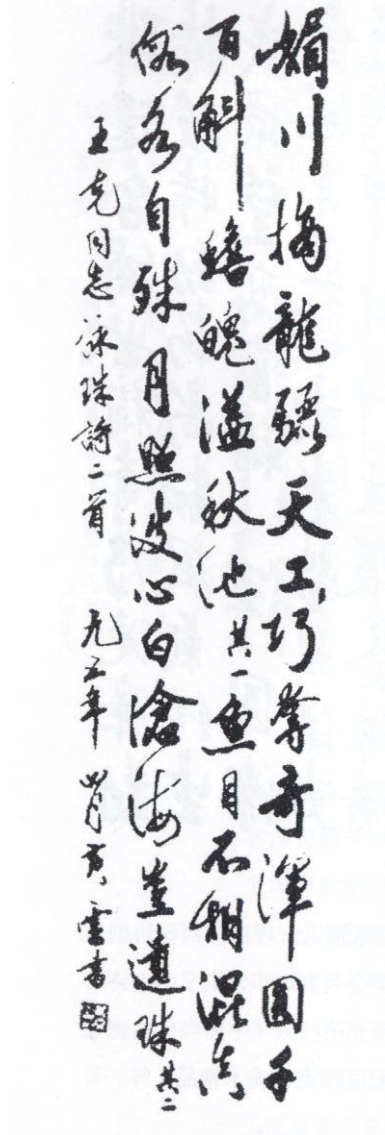 媚川摘龍驪天工巧奪奇渾圓千
百斛蟾魄溢秋池其一魚目不相混
俗各自殊月照波心白滄海豈遺珠其二
王克同志詠珠詩二首 九五年四月黄雲書